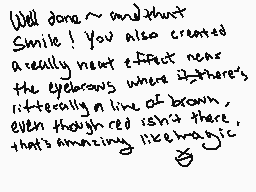 Well done ~ and that
Smile! You also created
a really neat effect near
the eyebrows where it, there's
litterally a line of brown,
even though red isn't there,
that's amazing like magic.